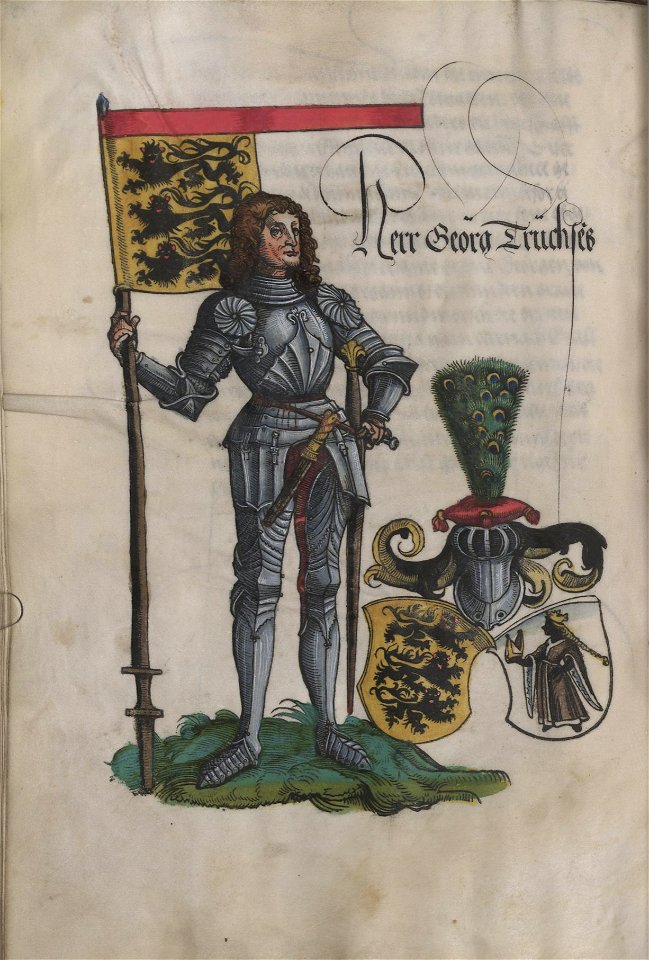 Herr Georg Trüchses